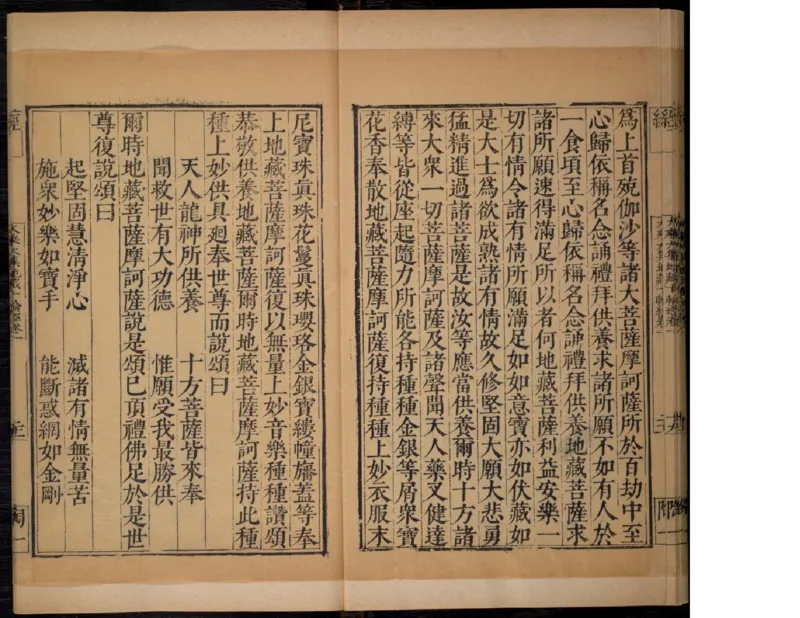 爲上首殑伽沙等諸大菩薩摩訶薩所於百劫中至
心歸依稱名念誦禮拜供養求諸所願不如有人於
一食頃至心歸依稱名念誦禮拜供養地藏菩薩求
諸所願速得滿足所以者何地藏菩薩利益安樂一
切有情令諸有情所願滿足如如意寶亦如伏藏如
是大士爲欲成熟諸有情故久修堅固大願大悲勇
猛精進過諸菩薩是故汝等應當供養爾時十方諸
來大衆一切菩薩摩訶薩及諸聲聞天人藥叉健達
縛等皆從座起隨力所能各持種種金銀等屑衆寶
花香奉散地藏菩薩摩訶薩復持種種上妙衣服末
尼寶珠眞珠花鬘眞珠瓔珞金銀寶縷幢旛蓋等奉
上地藏菩薩摩訶薩復以無量上妙音樂種種讚頌
恭敬供養地藏菩薩爾時地藏菩薩摩訶薩持此種
種上妙供具迴奉世尊而說頌曰
天人龍神所供養 十方菩薩皆來奉
聞救世有大功德 惟願受我最勝供
爾時地藏菩薩摩訶薩說是頌已頂禮佛足於是世
尊復說頌曰
起堅固慧清淨心 滅諸有情無量苦
施衆妙樂如寶手 能斷惑網如金剛